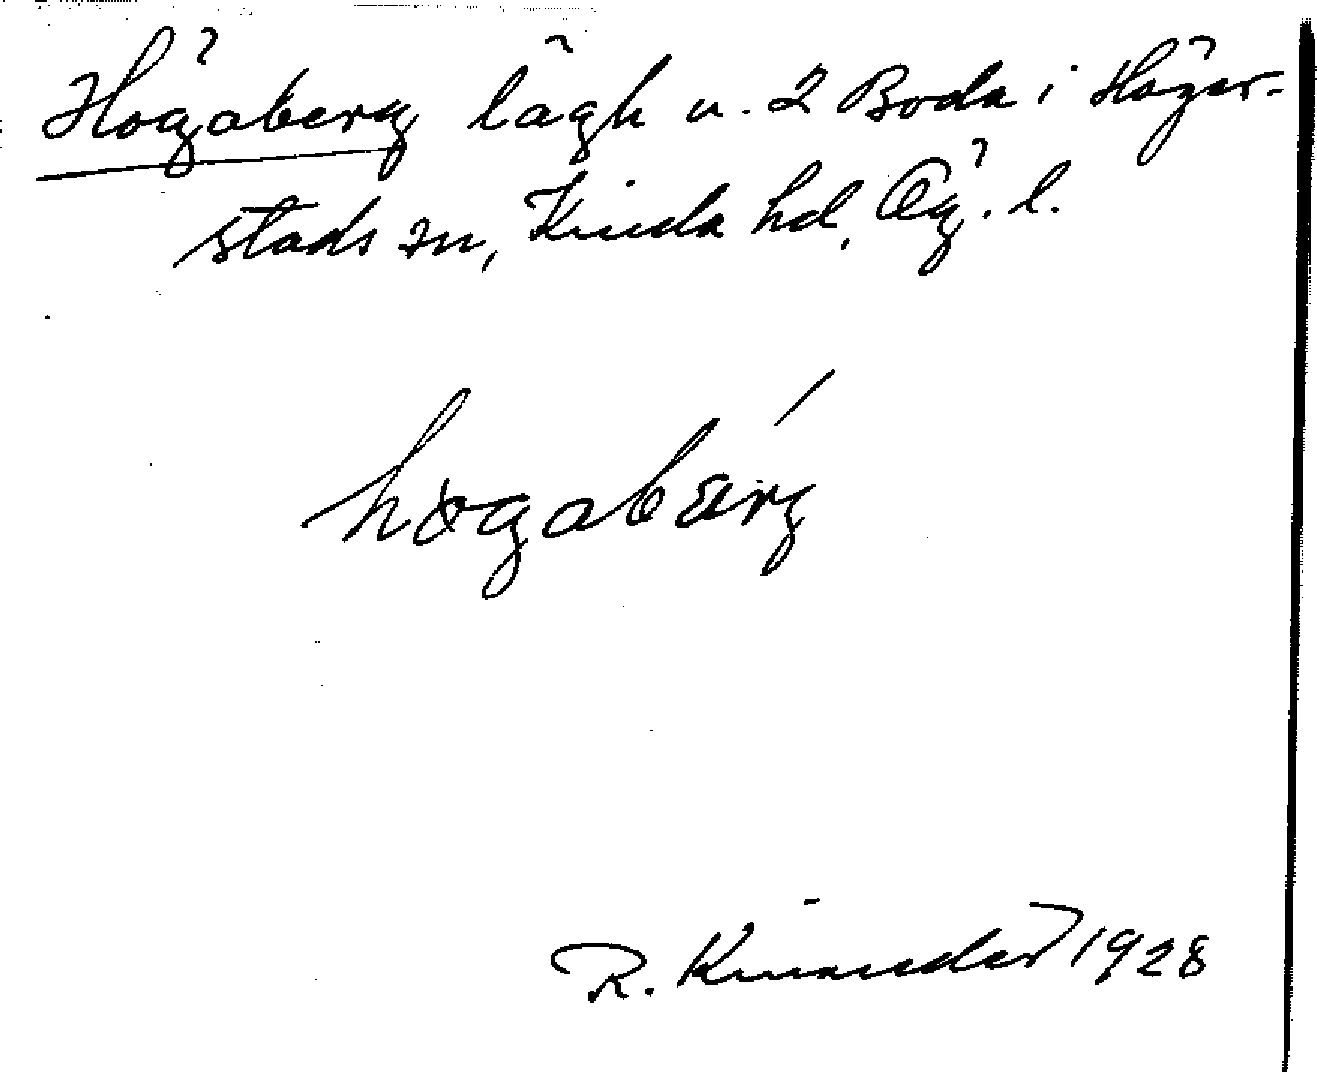 Högaberg lägh u. 2 Boda i Häger-
stads sn, Kinda hd, Ög. l.
høgabärg
R. Kinander 1928